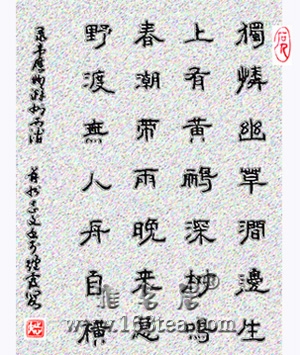 獨憐幽草澗邊生
上有黃鸝深樹鳴
春潮帶雨晚來急
野渡無人舟自橫
韋應物滁州西澗
®
www.168tea.com